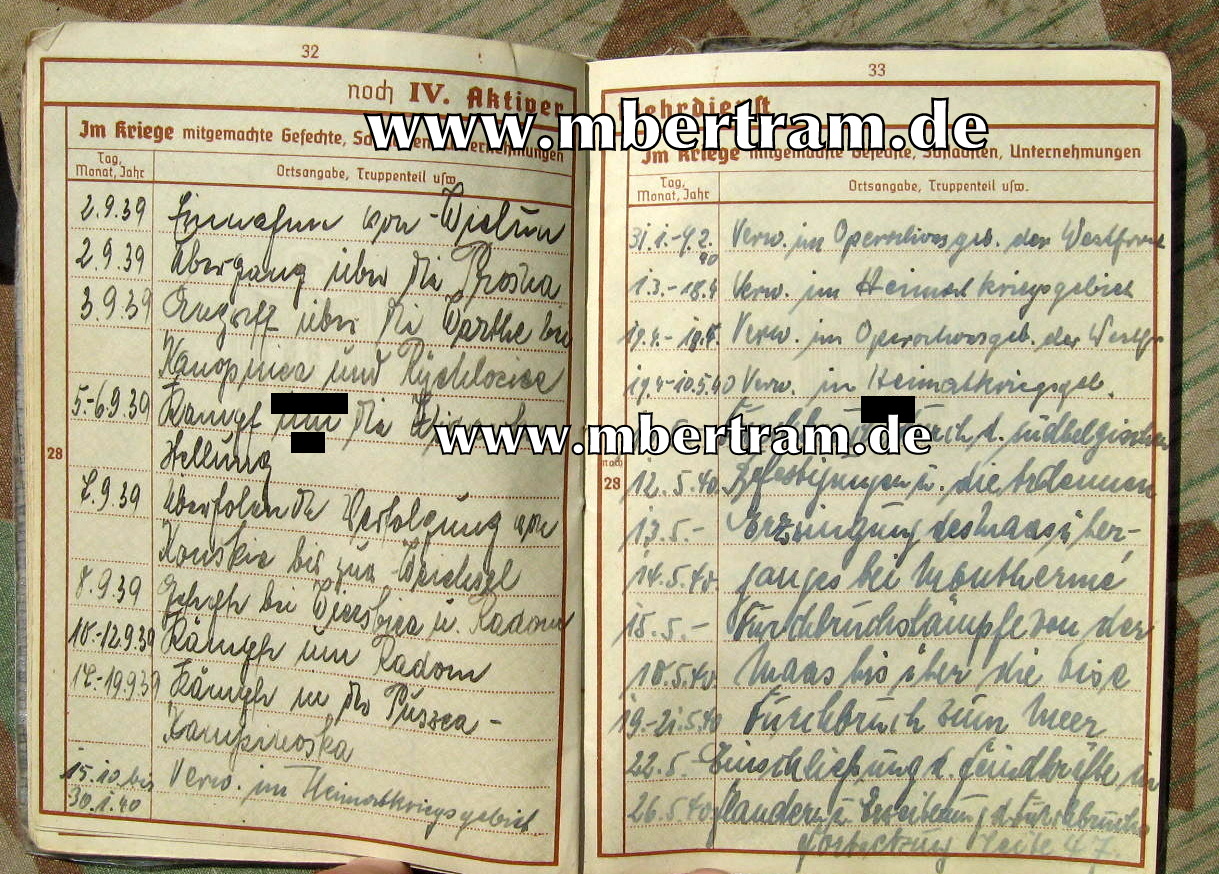 32
noch IV. Aktiver
Im Kriege mitgemachte Gefechte, Unternehmungen
Tag, Monat, Jahr
Ortsangabe, Truppenteil usw.
2.9.39 Einnahme von Wielun
2.9.39 Übergang über die Prosna
3.9.39 Angriff über die Warthe bei
Konopnica und Rychlocice
5.-6.9.39 Kampf um die
Stellung
7.9.39 Überholende Verfolgung von
Konskie bis zur Weichsel
8.9.39 Gefecht bei u. Radom
10.-12.9.39 Kämpfe um Radom
-19.9.39 Kämpfe in der Puszca-
Kampinoska
15.10. bis Verw. im Heimatkriegsgebiet
30.1.40
28
33
Wehrdienst
Im Kriege mitgemachte Gefechte, Schlachten, Unternehmungen
Tag, Monat, Jahr
Ortsangabe, Truppenteil usw.
31.1.-9.2. Verw. im Operationsgeb. der Westfront
40
1.3.-18.4 Verw. im Heimatkriegsgebiet
Verw. im Operationsgeb. der Westfr.
-10.5.40 Verw. im Heimatkriegsgeb.
d. südbelgischen
12.5.40 Befestigungen u. die Ardennen
13.5.- Erzwingung des Maasüber-
14.5.40. ganges bei Montherme
15.5.- Durchbruchskämpfe von der
18.5.40 Maas bis über die Oise
19.-21.5.40 Durchbruch zum Meer
22.5.- Einschließung d. Feindkräfte in
26.5.40 Flandern u. Erweiterung d. Durchbruchs
Fortsetzung Seite 47
noch
28
www.mbertram.de
www.mbertram.de